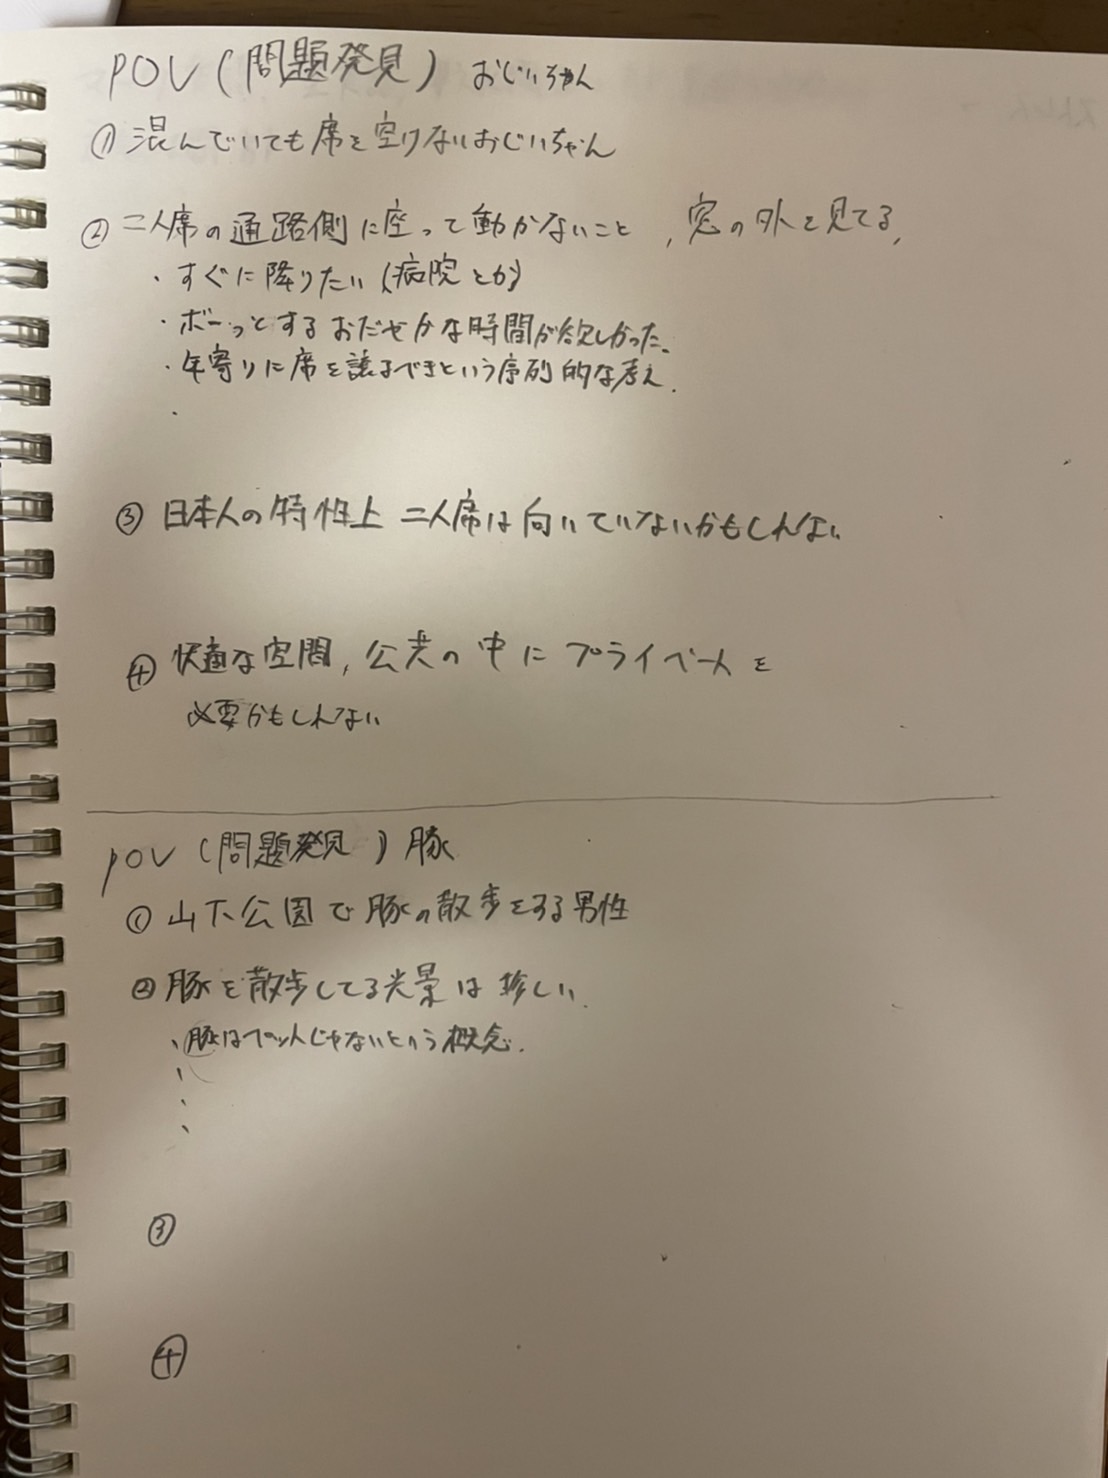 POV (問題発見) おじいちゃん
① 混んでいても席を空けないおじいちゃん
② 二人席の通路側に座って動かないこと , 窓の外を見てる,
・すぐに降りたい (病院とか)
・ボーっとするおだやかな時間が欲しかった。
・年寄りに席を譲るべきという序列的な考え.
・
③ 日本人の特性上 二人席は向いていないかもしんない
④ 快適な空間, 公共の中に プライベートを
必要かもしんない
POV (問題発見) 豚
① 山下公園で豚の散歩をする男性
② 豚を散歩してる光景は珍しい.
、豚はペットじゃないという概念.
、
、
、
③
④